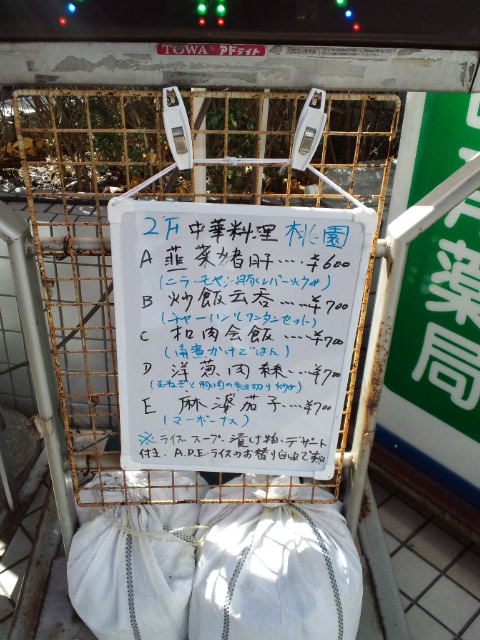 TOWA アドライト
2F 中華料理 桃園
A 韮菜猪肝....¥600
(ニラ・モヤシ、豚レバー炒め)
B 炒飯云吞....¥700
(チャーハン、ワンタンセット)
C 扣肉会飯....¥700
(角煮かけごはん)
D 洋葱肉絲....¥700
(玉ねぎと豚肉の細切り炒め)
E 麻婆茄子...¥700
(マーボーナス)
※ライス、スープ、漬け物、デザート
付き. A.D.E.ライスのお替り自由です
薬局